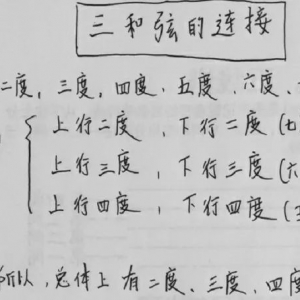 三和弦的连接
二度，三度，四度、五度、六度、
上行二度，下行二度(七
上行三度，下行三度(六
上行四度，下行四度(五
所以，总体上有二度、三度、四度